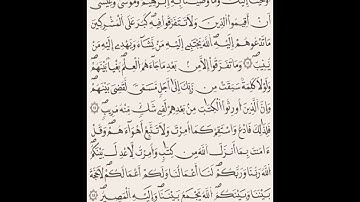 أَوْحَيْنَآ إِلَيْكَ وَمَا وَصَّيْنَا بِهِۦٓ إِبْرَٰهِيمَ وَمُوسَىٰ وَعِيسَىٰٓ
أَنْ أَقِيمُوا۟ ٱلدِّينَ وَلَا تَتَفَرَّقُوا۟ فِيهِ كَبُرَ عَلَى ٱلْمُشْرِكِينَ
مَا تَدْعُوهُمْ إِلَيْهِ ٱللَّهُ يَجْتَبِىٓ إِلَيْهِ مَن يَشَآءُ وَيَهْدِىٓ إِلَيْهِ مَن
يُنِيبُ ۝ وَمَا تَفَرَّقُوٓا۟ إِلَّا مِنۢ بَعْدِ مَا جَآءَهُمُ ٱلْعِلْمُ بَغْيًۢا بَيْنَهُمْ
وَلَوْلَا كَلِمَةٌ سَبَقَتْ مِن رَّبِّكَ إِلَىٰٓ أَجَلٍ مُّسَمًّى لَّقُضِىَ بَيْنَهُمْ
وَإِنَّ ٱلَّذِينَ أُورِثُوا۟ ٱلْكِتَٰبَ مِنۢ بَعْدِهِمْ لَفِى شَكٍّ مِّنْهُ مُرِيبٍ ۝
فَلِذَٰلِكَ فَٱدْعُ وَٱسْتَقِمْ كَمَآ أُمِرْتَ وَلَا تَتَّبِعْ أَهْوَآءَهُمْ وَقُلْ
ءَامَنتُ بِمَآ أَنزَلَ ٱللَّهُ مِن كِتَٰبٍ وَأُمِرْتُ لِأَعْدِلَ بَيْنَكُمُ
ٱللَّهُ رَبُّنَا وَرَبُّكُمْ لَنَآ أَعْمَٰلُنَا وَلَكُمْ أَعْمَٰلُكُمْ لَا حُجَّةَ
بَيْنَنَا وَبَيْنَكُمُ ٱللَّهُ يَجْمَعُ بَيْنَنَا وَإِلَيْهِ ٱلْمَصِيرُ ۝